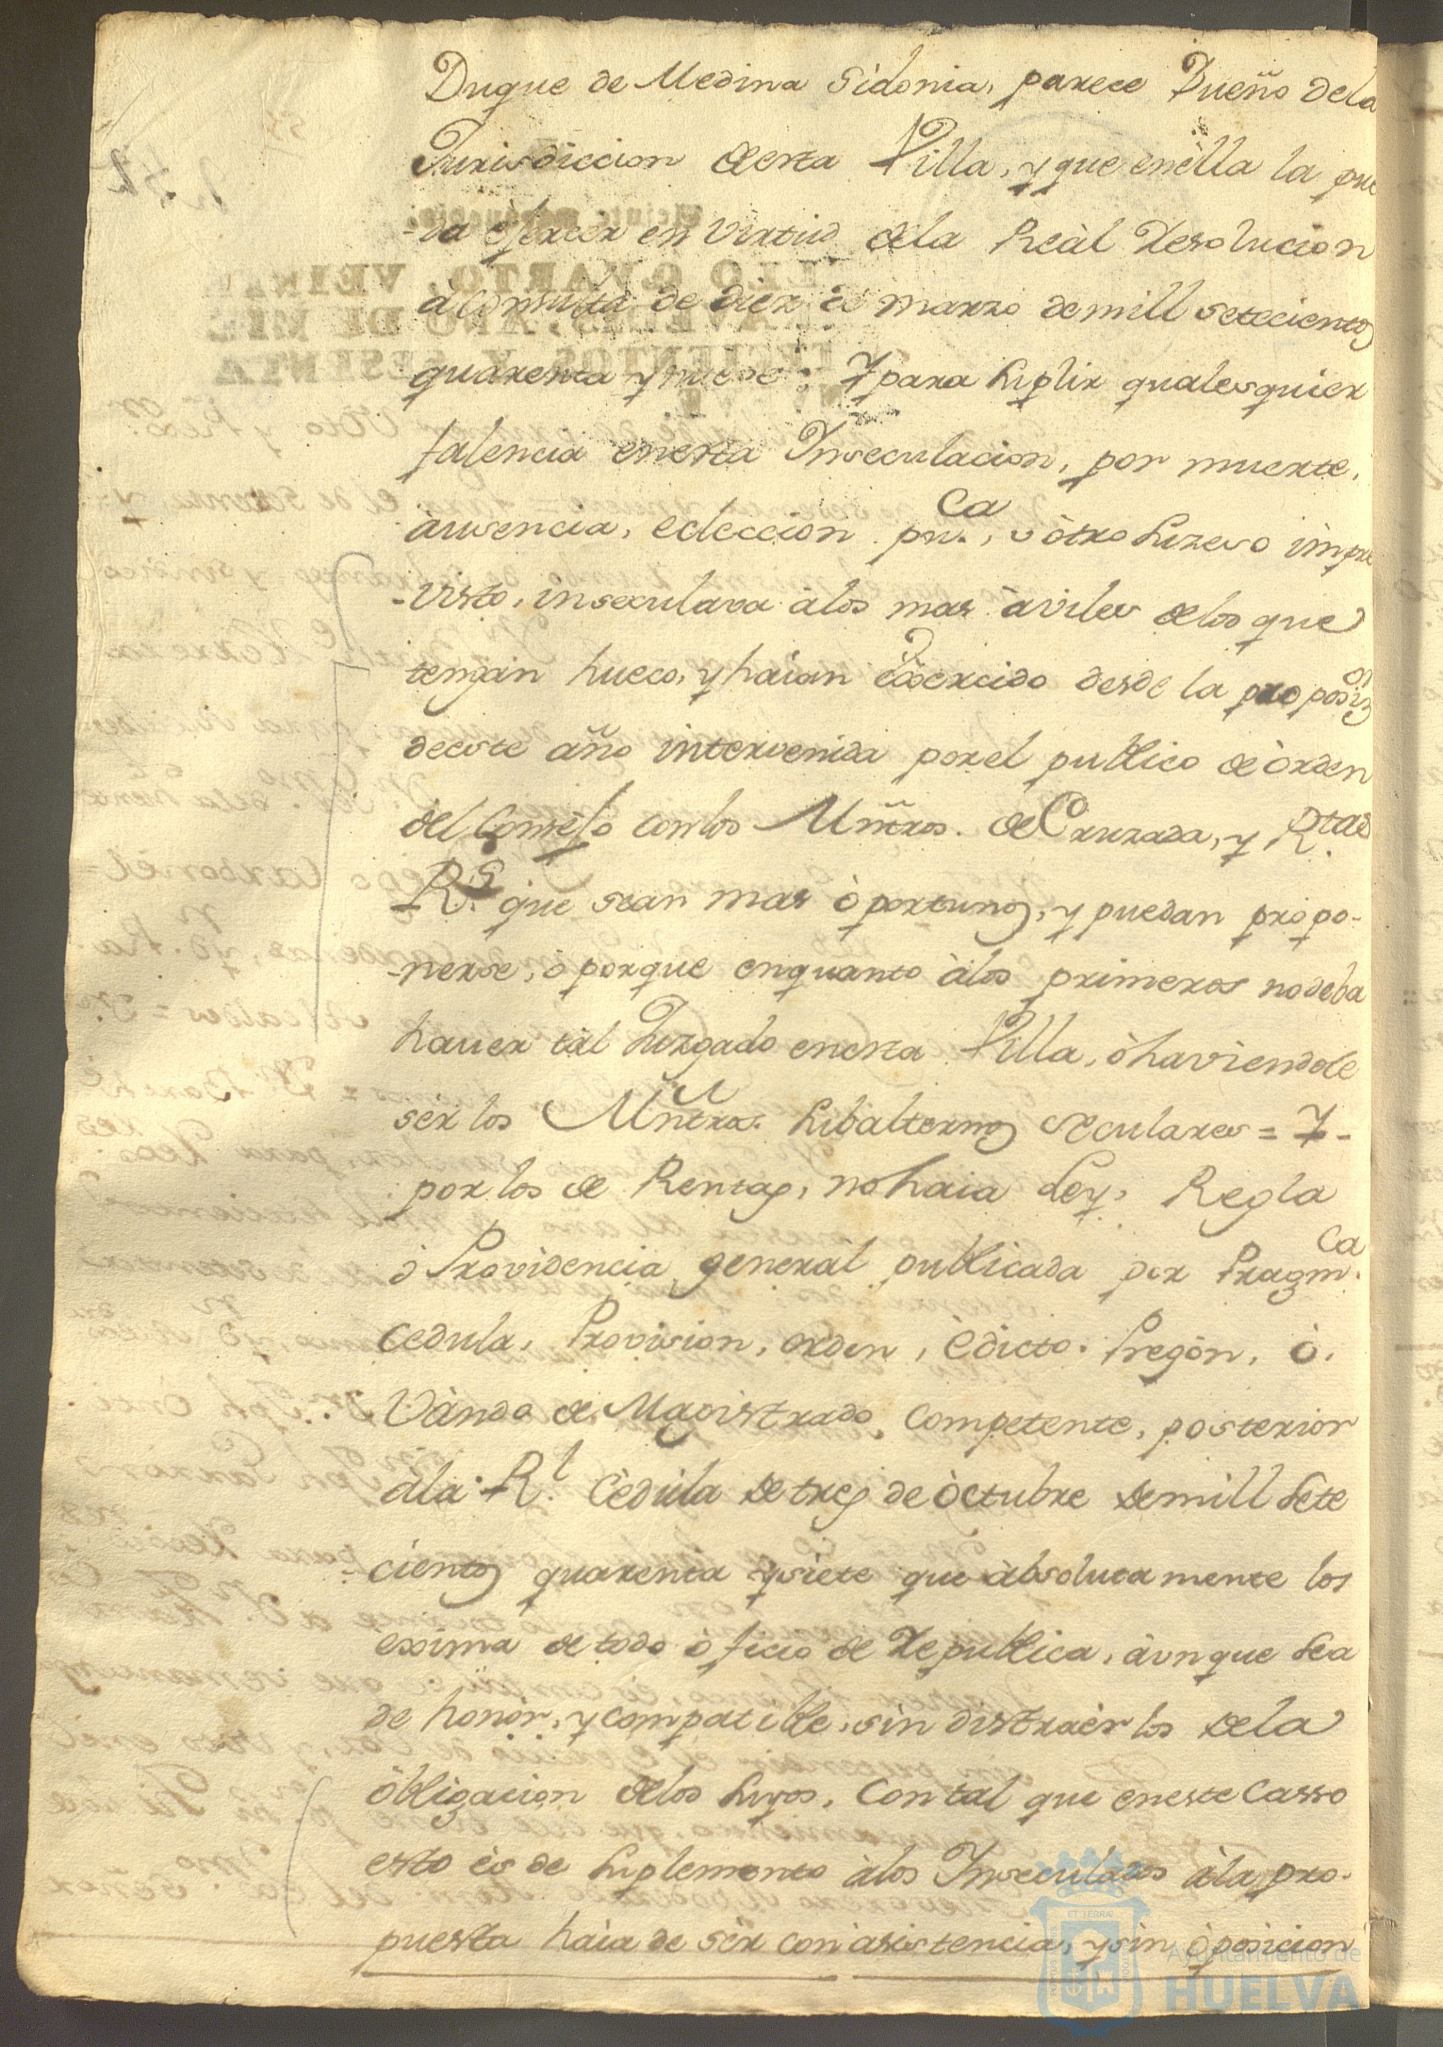 Duque de Medina Sidonia, parece Dueño dela
Jurisdiccion deesta Villa, y que enèlla la pue
-da êxercer en virtud dela Reàl Resolucion
à Consulta de diez de marzo demill setecientos
quarenta y nueve: Y para suplir qualesquier
falencia enesta Inseculacion, por muerte,
àusencia, eleccion pu.ca, ù òtro suzeso impre
-visto, inseculava àlos mas àviles delos que
tengan hueco, y haian êxercido desde la propos.on
deeste año intervenida porel publico de òrden
del Consejo conlos Mñtros. de Cruzada, y R.tas
R.s que sean mas òportunos, y puedan propo-
-nerse, ò porque enquanto àlos primeros nodeba
haver tàl Juzgado enesta Villa, ò haviendole
sèr los Mñtros. subalternos seculares = Y -
por los de Rentas, no haia Ley, Regla
ò Providencia generàl publicada por Pragm.ca
Cedula, Provision, orden, Èdicto. Pregòn, ò.
Vàndo de Magistrado Competente, posterior
àla R.l Cèdula de tres de òctubre demill sete
-cientos quarenta ysiete que àbsolutamente los
èxima de todo òficio de Republica, àunque sea
de honòr, y compatible, sin distraèrlos dela
òbligacion delos suyos, Con tàl que eneste Casso
esto ès de suplemento àlos Inseculados àla pro-
puesta haia de sèr con àsistencia, y sin òposicion
VEINTE
QVARTO, VEINTE
MARAVEDIS, AÑO DE MIL
SETECIENTOS Y SESENTA
Ayuntamiento de
HUELVA